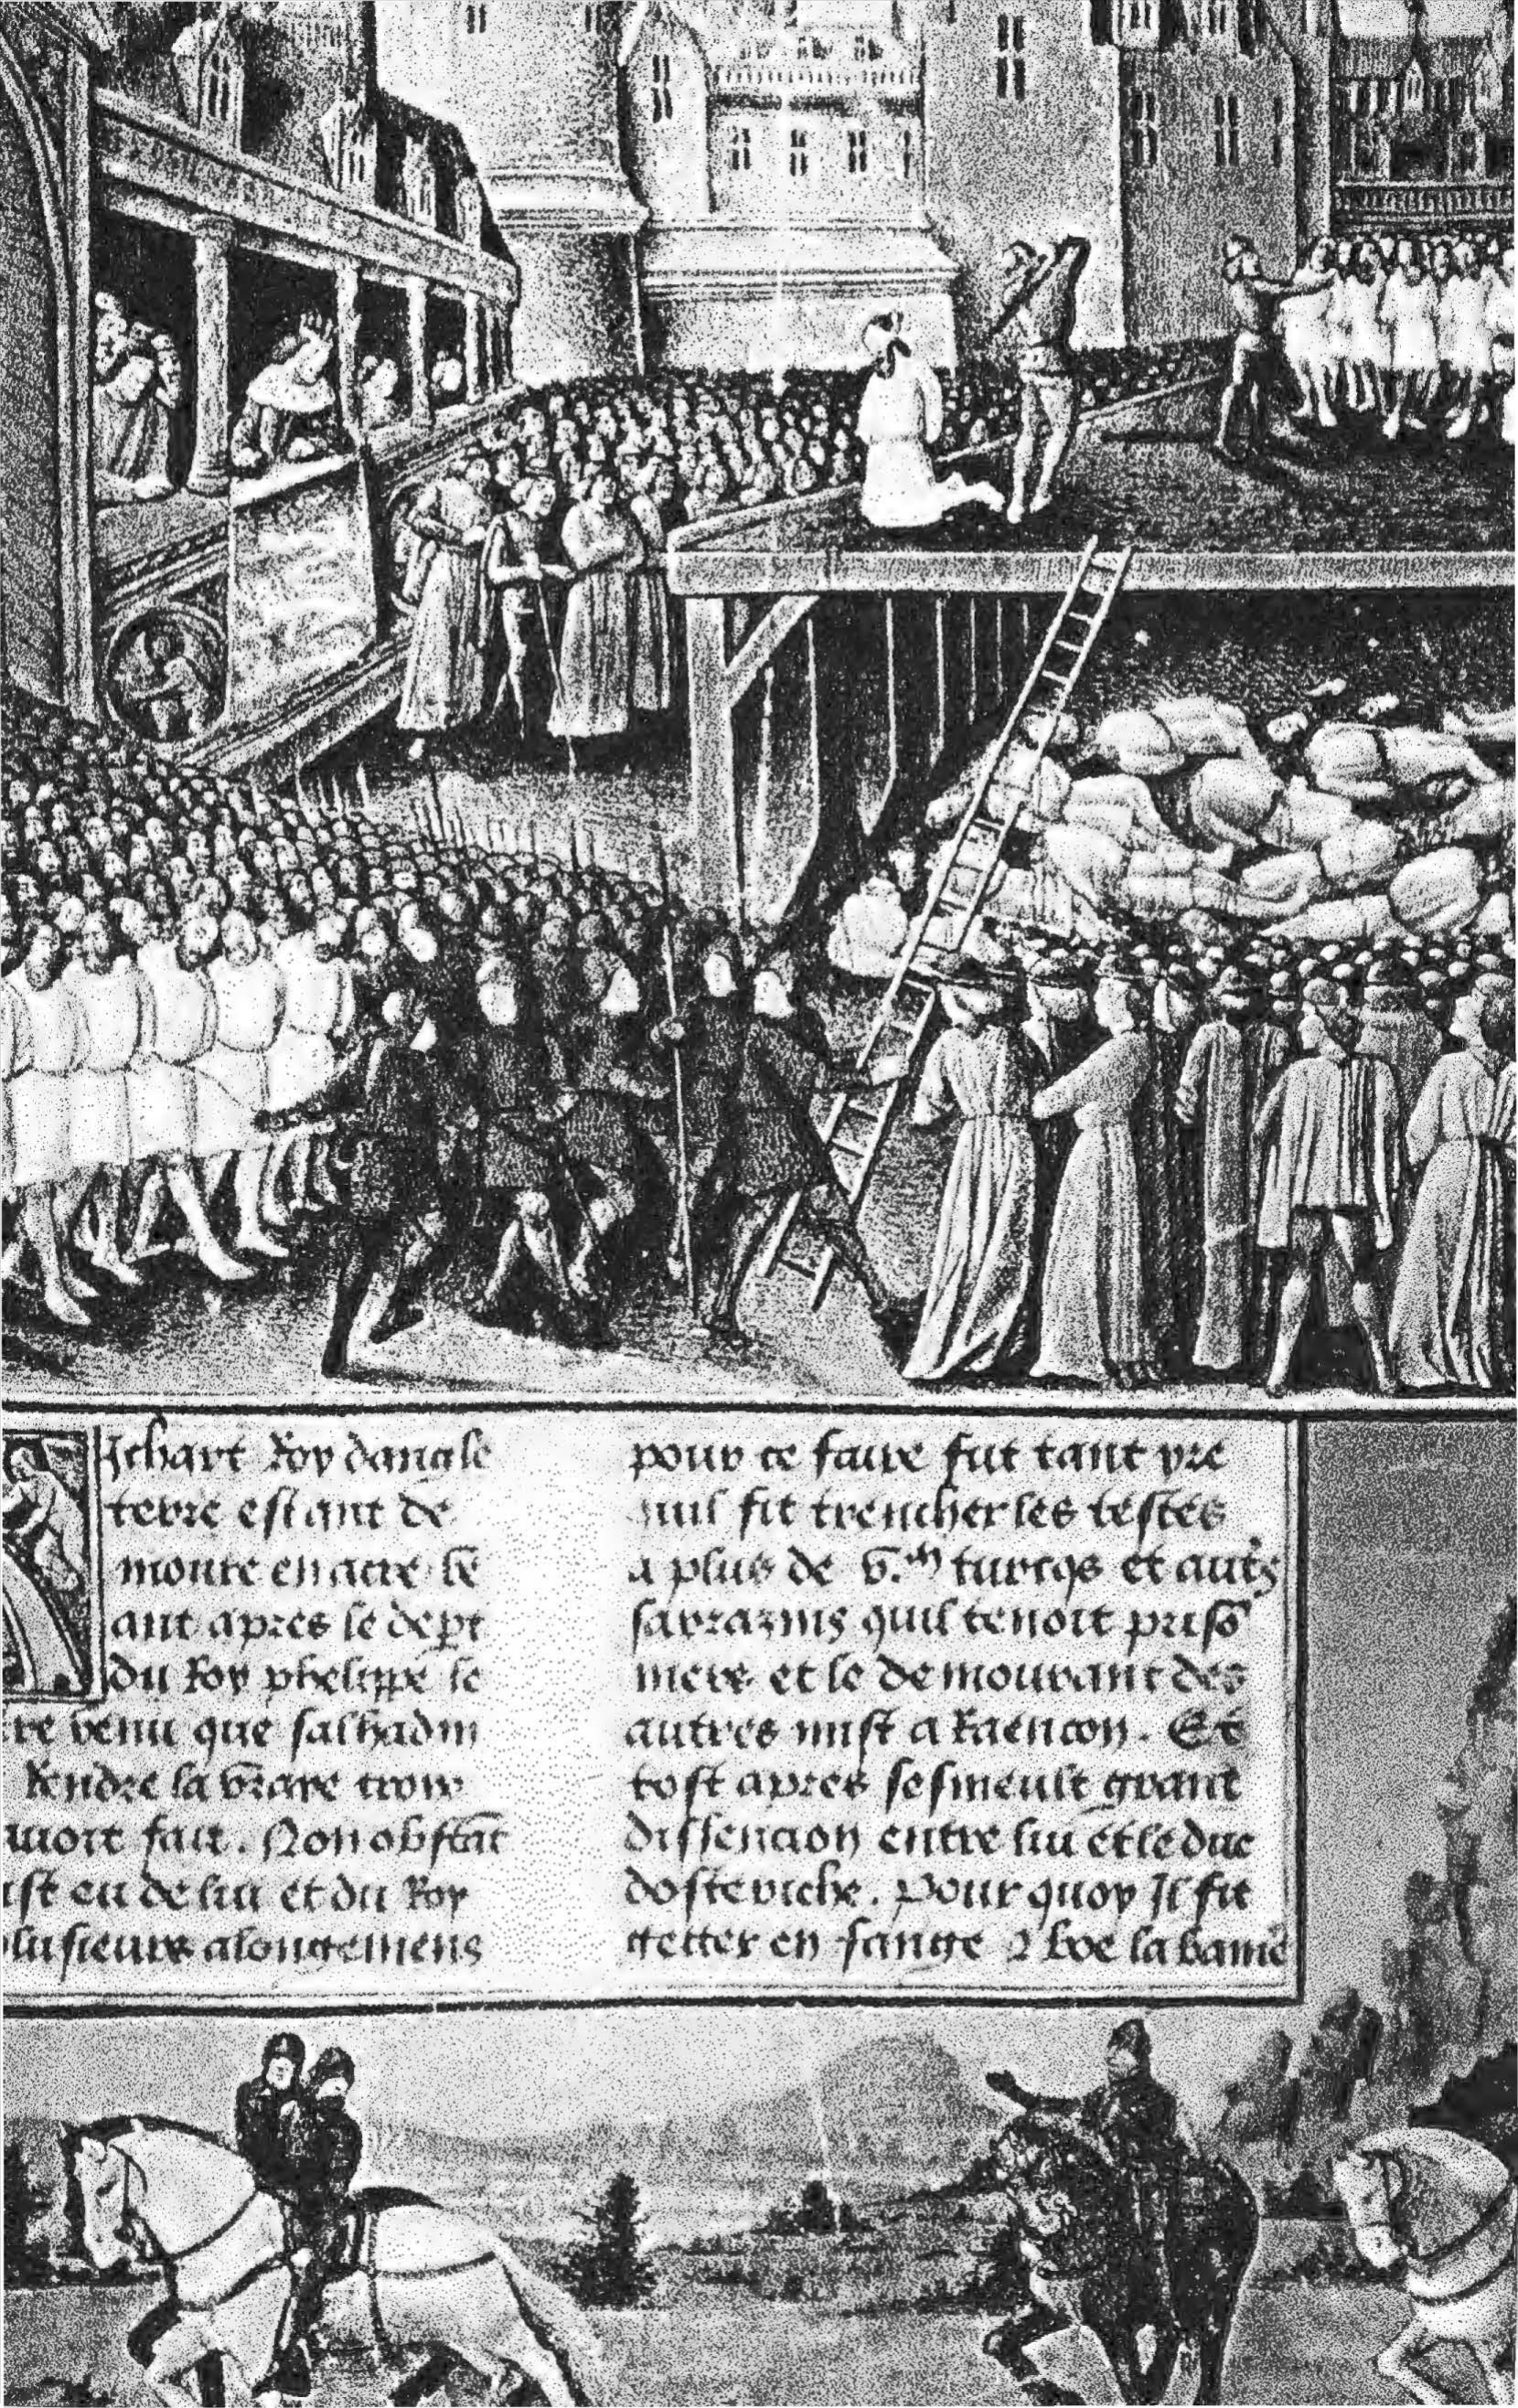 Ichart Roy dangle
terre estant de
moure en acre
ant apres le dept
du Roy phelippe le
re venu que salhadin
Rendre la vraye croix
avoit fait. Non obstāt
ist eu de lui et du Roy
plusieurs alongemens
pour ce faire fut tant yre
quil fit trencher les testes
a plus de v.ᵐ turcqs et autꝭ
sarrazins quil tenoit prisō
niers et le demourant des
autres mist a Raencon. Et
tost apres se smeult grant
dissencion entre lui et le duc
dosteriche. Pour quoy Il fit
getter en fange ⁊ boe la banie